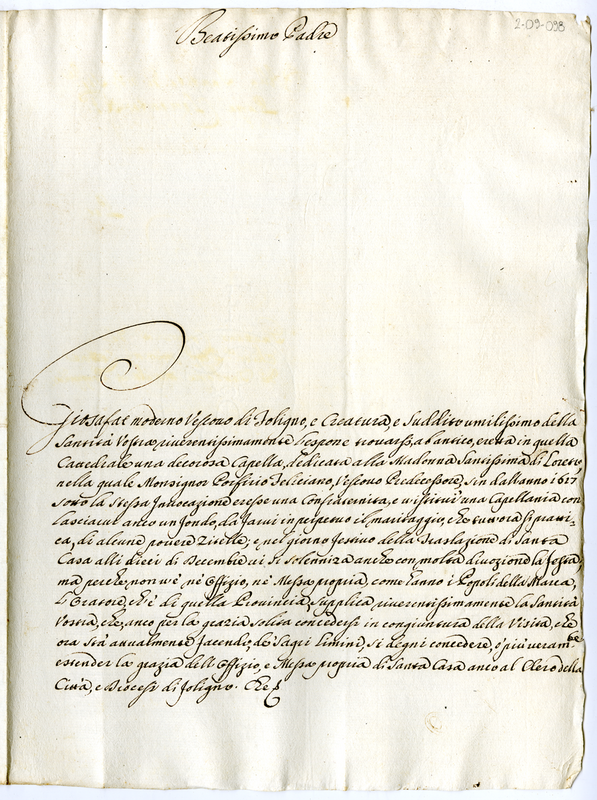 2-09-098
Beatissimo Padre
Giosafat moderno Vescovo di Foligno, e Creatura, e Suddito umilissimo della
Santità Vostra, riverentissimamente l'espone trovarsi, ab antico, eretta in quella
Cattedrale una decorosa Capella, dedicata alla Madonna Santissima di Loreto,
nella quale Monsignor Porfirio Feliciano, Vescovo Predecessore, sin dall'anno 1617
sotto la stessa Invocazione eresse una Confraternita, e vi istituì una Capellania con
lasciarvi anco un fondo, da farvi in perpetuo il maritaggio, che tuttora si pratti-
ca, di alcune povere Zitelle; e nel giorno festivo della Traslazione di Santa
Casa alli dieci di Decembre ivi si solenniza anche con molta divozione la festa,
mà perche non v'è nè Offizio, nè Messa propria, come hanno i Popoli della Marca,
L'Oratore, ch'è di quella Provincia, supplica riverentissimamente la Santità
Vostra, che, anco per la grazia solita concedersi in congiuntura della Visita, che
ora stà attualmente facendo, de' Sagri Limini, si degni concedere, e più veram.te
estender la grazia dell'Offizio, e Messa propria di Santa Casa anco al Clero della
Città, e Diocesi di Foligno. Che